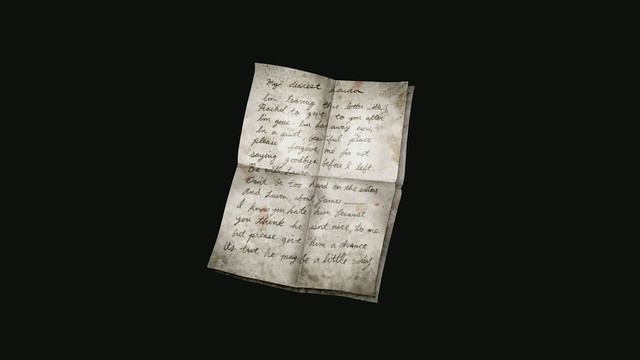 My dearest Laura
I'm leaving this letter with
Rachel to give to you after
I'm gone. I'm far away now,
In a quiet, beautiful place
please forgive me for not
saying goodbye before I left.
Be well, Laura.
Don't be too hard on the sisters
And Laura, about James
I know you hate him because
you think he isnt nice to me
but please give him a chance
It's true he may be a little surly